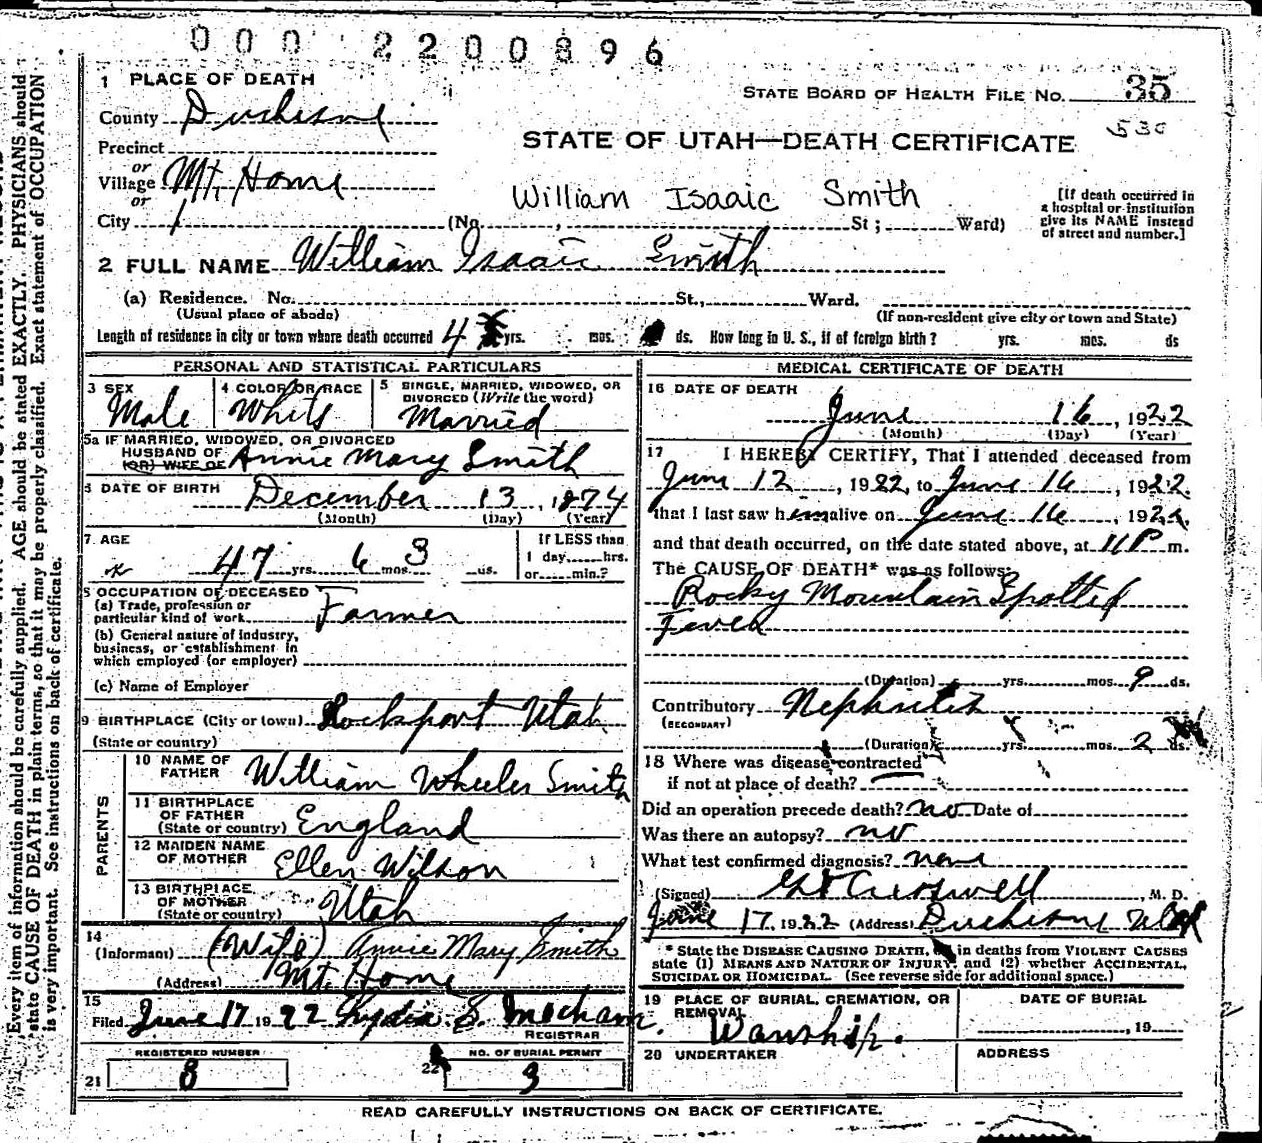 000 2200896
1 PLACE OF DEATH
STATE BOARD OF HEALTH FILE NO. 35
County Duchesne
530
STATE OF UTAH—DEATH CERTIFICATE
Precinct
or
Village Mt. Home
or
William Isaaic Smith
[If death occurred in
a hospital or institution
give its NAME instead
of street and number.]
City (No. , St ; Ward)
2 FULL NAME William Isaaic Smith
(a) Residence. No. St., Ward.
(Usual place of abode) (If non-resident give city or town and State)
Length of residence in city or town where death occurred 4 yrs. mos. ds. How long in U. S., if of foreign birth? yrs. mos. ds
PERSONAL AND STATISTICAL PARTICULARS
3 SEX Male
4 COLOR OR RACE White
5 SINGLE, MARRIED, WIDOWED, OR
DIVORCED (Write the word)
Married
5a IF MARRIED, WIDOWED, OR DIVORCED
HUSBAND OF
(OR) WIFE OF Annie Mary Smith
6 DATE OF BIRTH December 13, 1874
(Month) (Day) (Year)
7. AGE 47 yrs. 6 mos 3
If LESS than
1 day hrs.
or min.?
8 OCCUPATION OF DECEASED
(a) Trade, profession or
particular kind of work Farmer
(b) General nature of industry,
business, or establishment in
which employed (or employer)
(c) Name of Employer
9 BIRTHPLACE (City or town) Rockport Utah
(State or country)
PARENTS
10 NAME OF
FATHER William Wheeler Smith
11 BIRTHPLACE
OF FATHER
(State or country) England
12 MAIDEN NAME
OF MOTHER Ellen Wilson
13 BIRTHPLACE
OF MOTHER
(State or country) Utah
14
(Informant) (Wife) Annie Mary Smith
(Address) Mt. Home
15
Filed June 17 1922 Lydia S. Mecham.
REGISTRAR
REGISTERED NUMBER
21 8
NO. OF BURIAL PERMIT
22 3
MEDICAL CERTIFICATE OF DEATH
16 DATE OF DEATH
June 16, 1922
(Month) (Day) (Year)
17 I HEREBY CERTIFY, That I attended deceased from
June 12, 1922, to June 16, 1922.
that I last saw him alive on June 16, 1922.
and that death occurred, on the date stated above, at 11 P m.
The CAUSE OF DEATH* was as follows:
Rocky Mountain Spotted
Fever
(Duration) yrs. mos. 9 ds.
Contributory Nephritis
(SECONDARY)
(Duration) yrs. mos. 2 ds.
18 Where was disease contracted
if not at place of death?
Did an operation precede death? no Date of
Was there an autopsy? no
What test confirmed diagnosis? none
(Signed) Creswell, M. D.
June 17, 1922 (Address) Duchesne Utah
* State the DISEASE CAUSING DEATH, in deaths from VIOLENT CAUSES
state (1) MEANS AND NATURE OF INJURY, and (2) whether ACCIDENTAL,
SUICIDAL OR HOMICIDAL. (See reverse side for additional space.)
19 PLACE OF BURIAL, CREMATION, OR
REMOVAL
Wanship.
DATE OF BURIAL
, 19
20 UNDERTAKER
ADDRESS
READ CAREFULLY INSTRUCTIONS ON BACK OF CERTIFICATE.
Every item of information should be carefully supplied. AGE should be stated EXACTLY. PHYSICIANS should
state CAUSE OF DEATH in plain terms, so that it may be properly classified. Exact statement of OCCUPATION
is very important. See instructions on back of certificate.